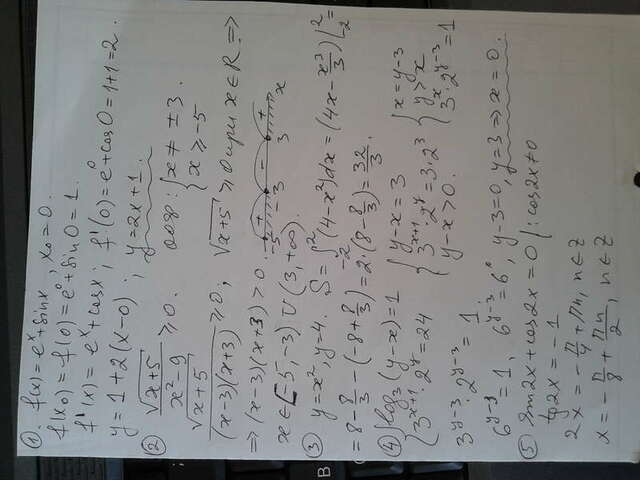 ① f(x)=eˣ+sinx, x₀=0.
f(x₀)=f(0)=e⁰+sin0=1.
f'(x)=eˣ+cosx; f'(0)=e⁰+cos0=1+1=2.
y=1+2(x-0); y=2x+1.
② √(x+5)/(x²-9) ≥0. {x≠±3. x≥-5
√(x+5)/((x-3)(x+3)) ≥0; √(x+5) ≥0 при x∈R ⇒
⇒ (x-3)(x+3)>0. -5 + -3 - 3 + x
x∈[-5,-3)∪(3,+∞).
③ y=x², y=4. S=∫₋₂²(4-x²)dx=(4x-x³/3)|₋₂²=
=8-8/3-(-8+8/3)=2·(8-8/3)=32/3.
④ {log₃(y-x)=1 {y-x=3 {x=y-3
{3ˣ⁺¹·2ʸ=24 {3ˣ⁺¹·2ʸ=3·2³ {y>x
y-x>0. 3ˣ·2ʸ⁻³=1
3ʸ⁻³·2ʸ⁻³=1
6ʸ⁻³=1, 6ʸ⁻³=6⁰, y-3=0, y=3 ⇒ x=0.
⑤ sin2x+cos2x=0 |:cos2x≠0
tg2x=-1
2x=-π/4+πn, n∈Z
x=-π/8+πn/2, n∈Z
B